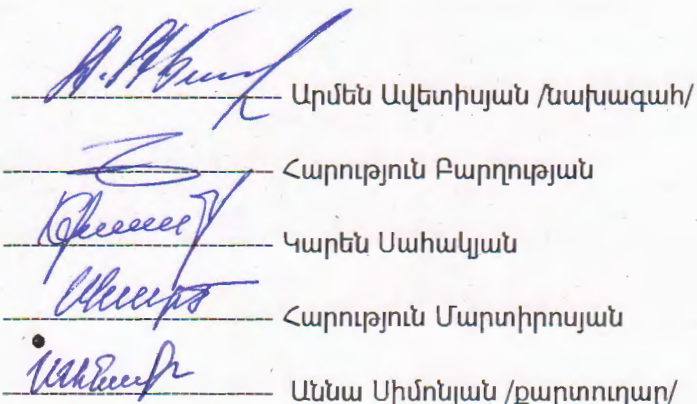 Արմեն Ավետիսյան /նախագահ/
Հարություն Բարղության
Կարեն Սահակյան
Հարություն Մարտիրոսյան
Աննա Սիմոնյան /քարտուղար/